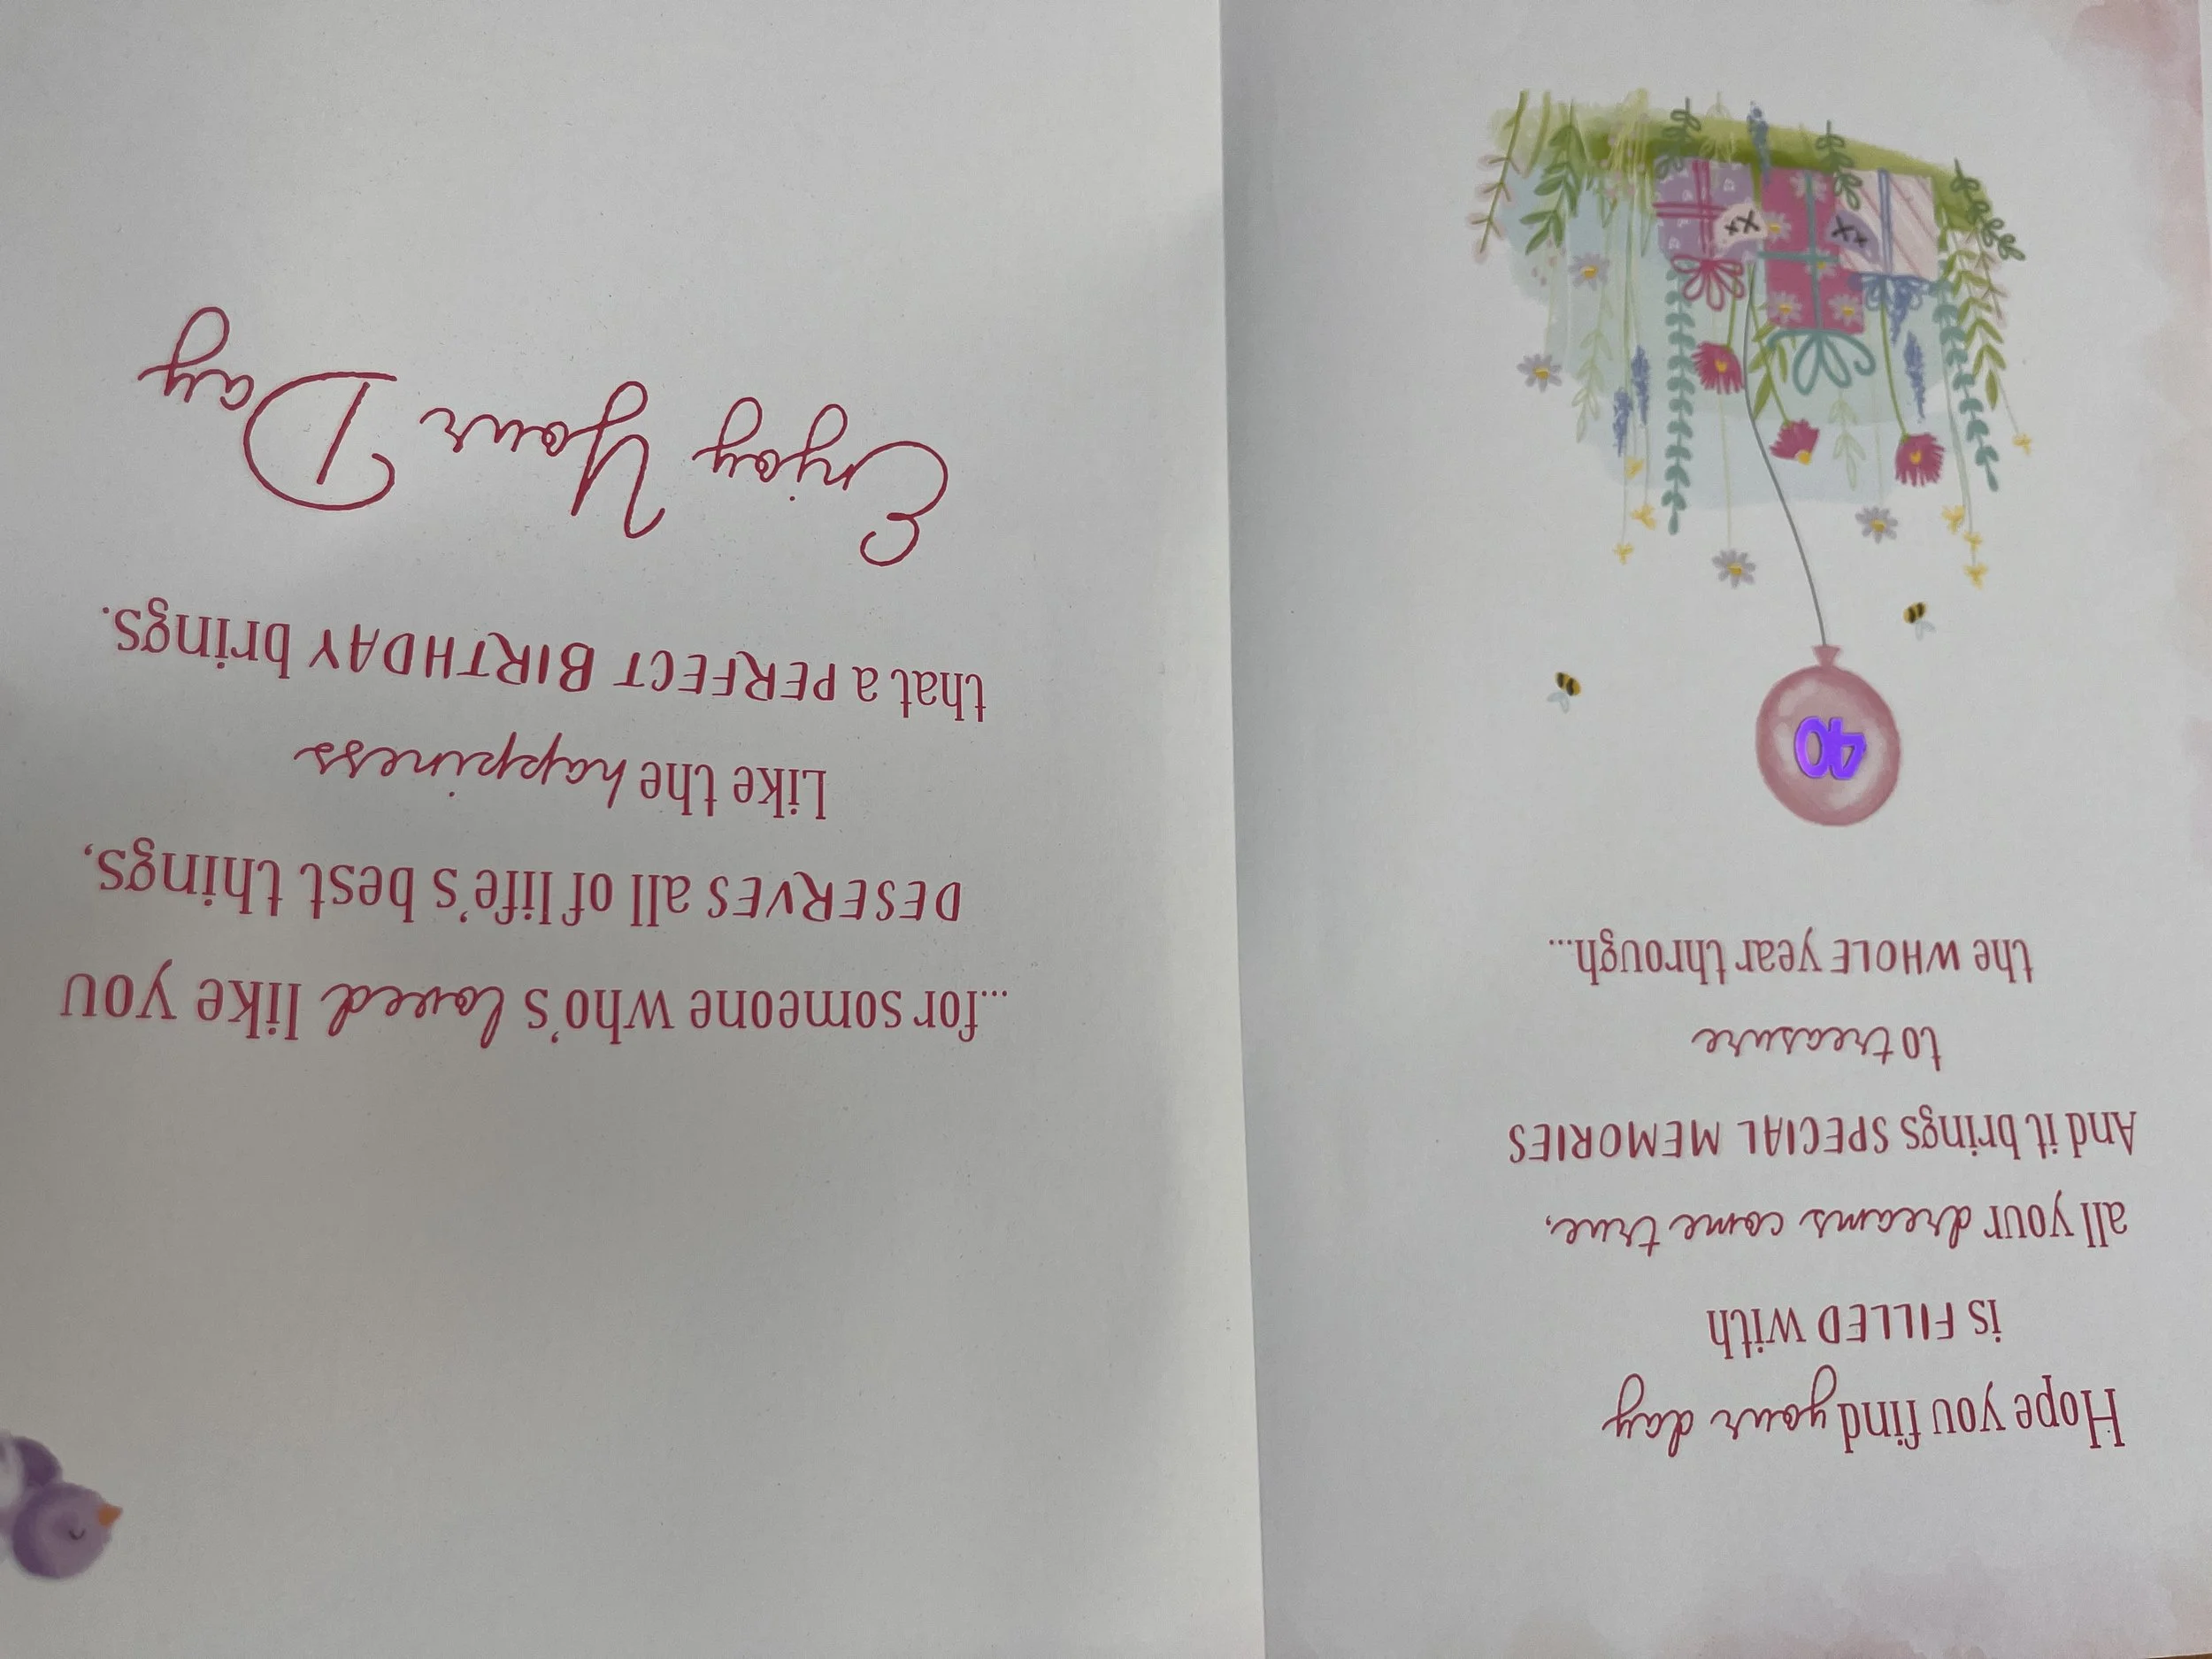 Hope you find your day
is FILLED with
all your dreams come true,
And it brings SPECIAL MEMORIES
to treasure
the WHOLE year through...
40
xx
xx
...for someone who's loved like you
DESERVES all of life's best things,
Like the happiness
that a PERFECT BIRTHDAY brings.
Enjoy Your Day